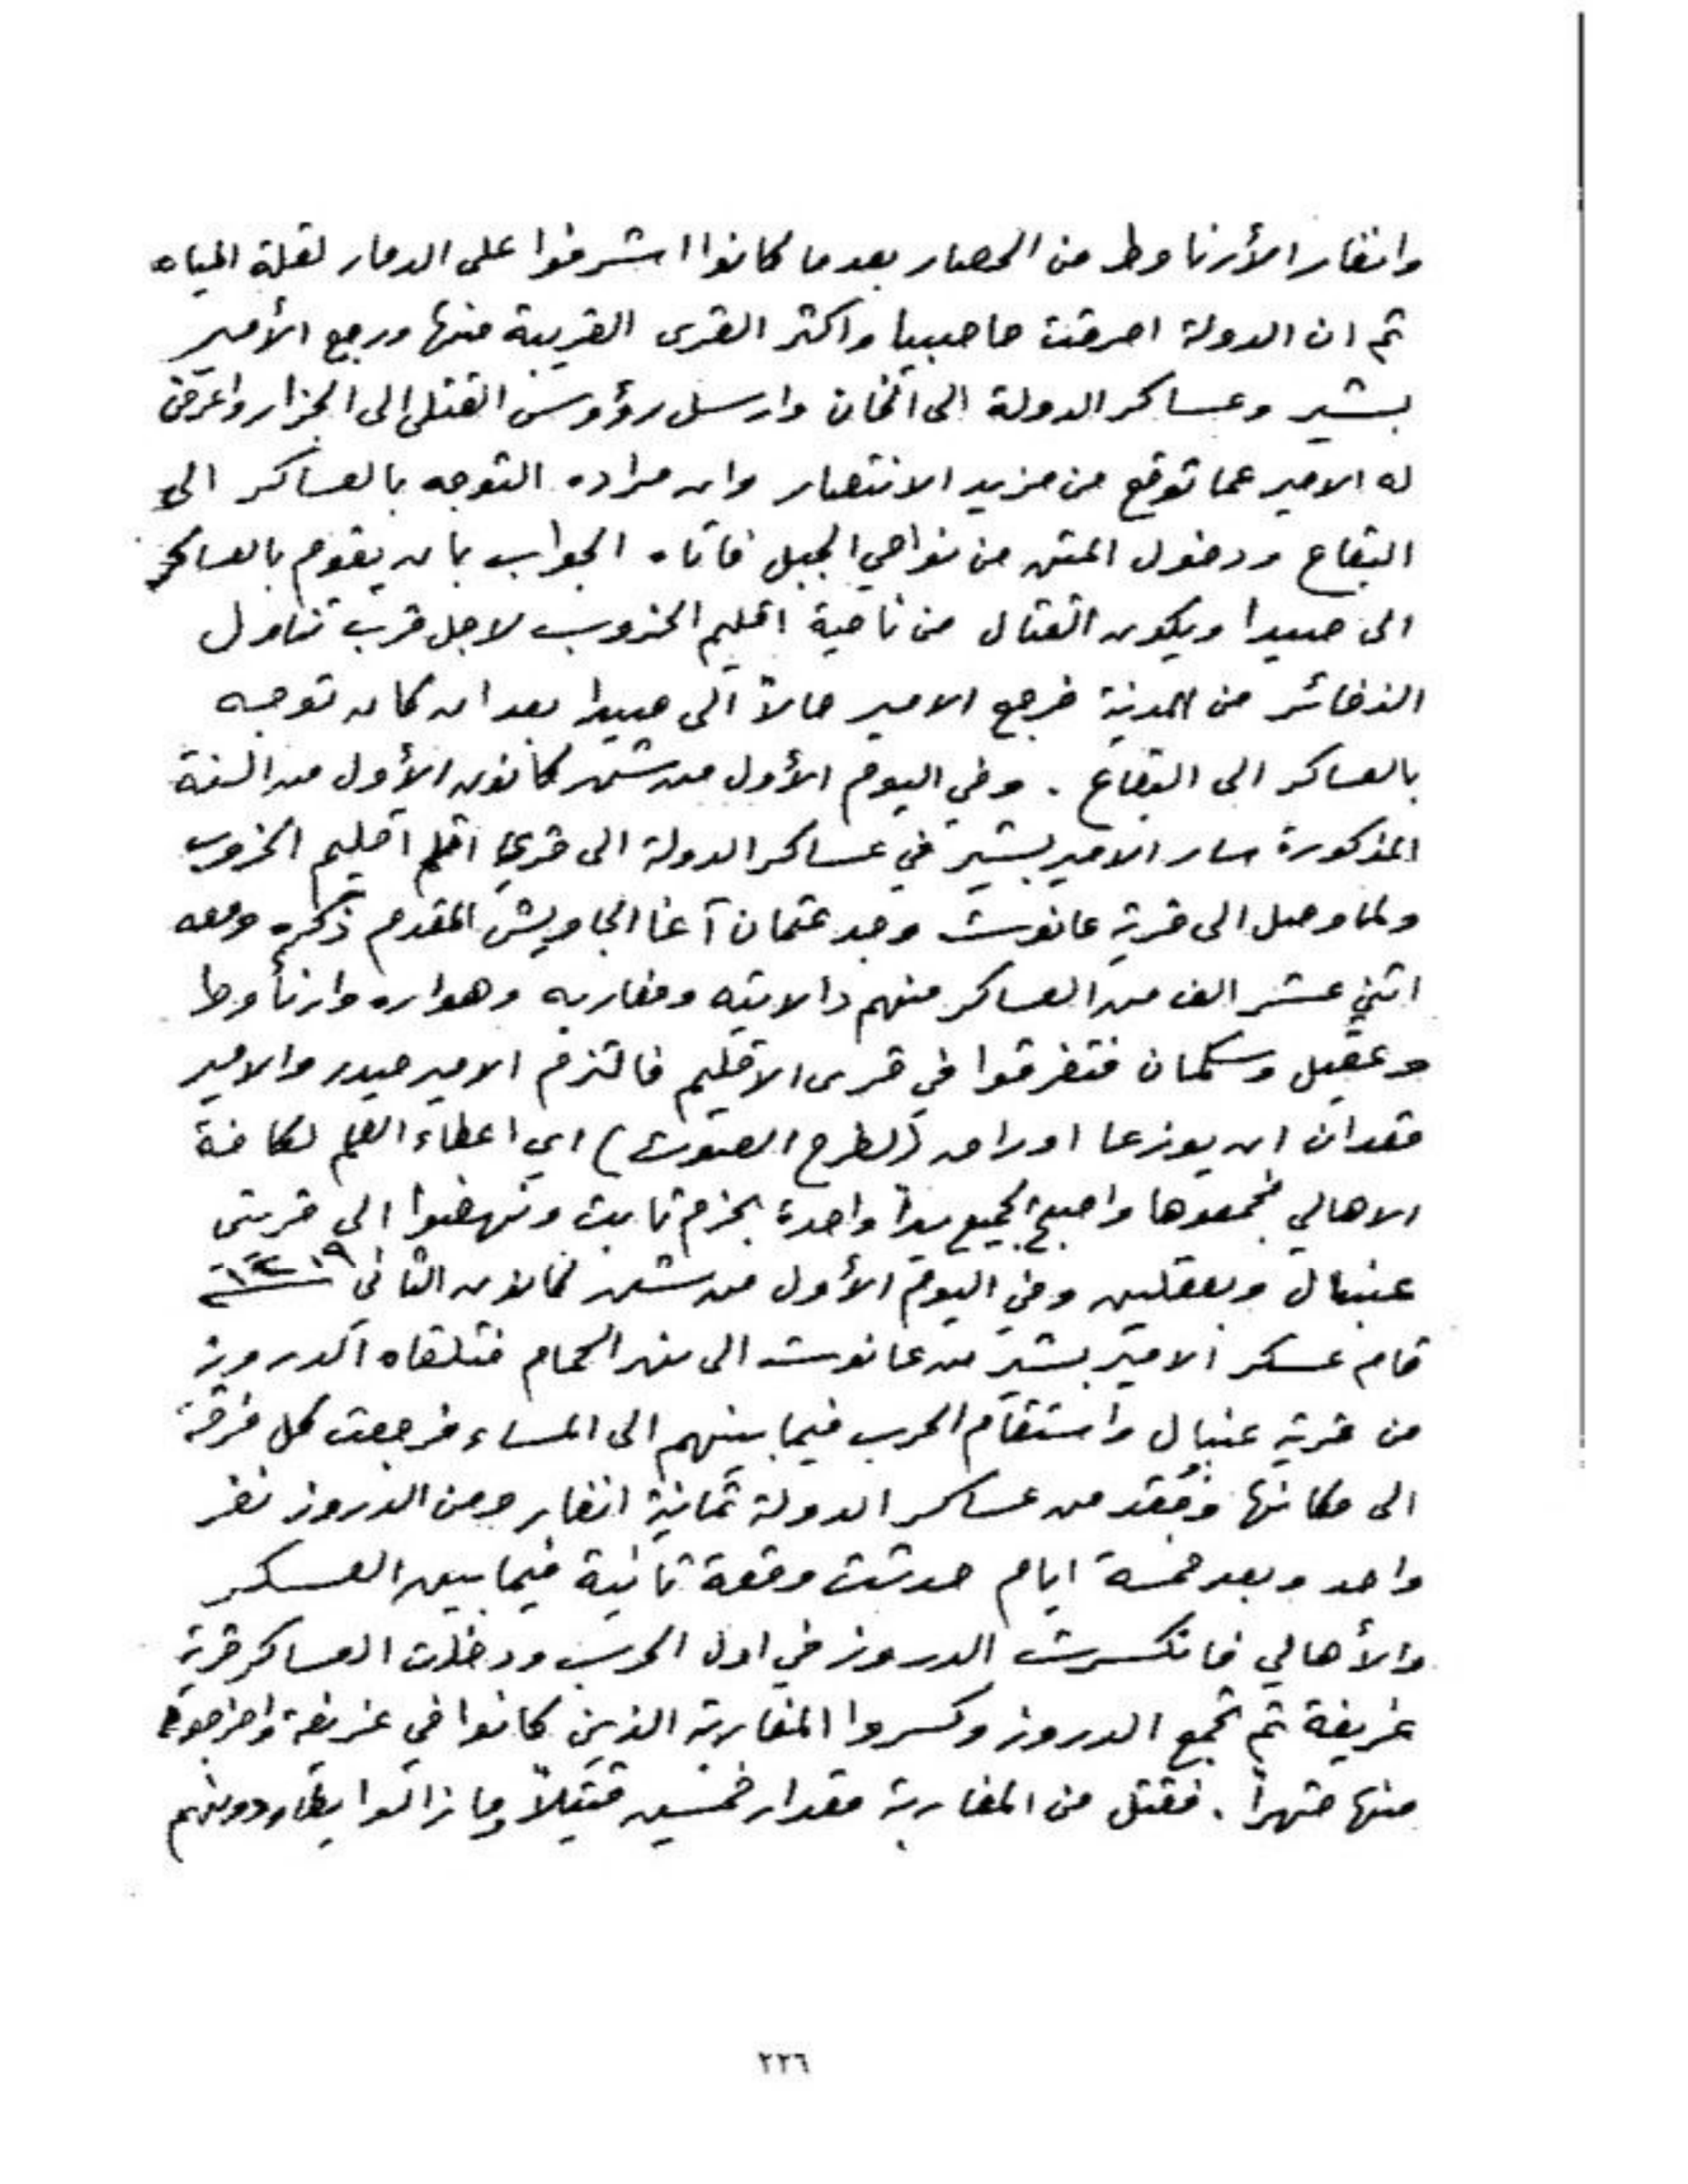 وانفار الأرناوط من الحصار بعدما كانوا اشرفوا على الدمار لقلة المياه
ثم ان الدولة احرقت حاصبيا واكثر القرى القريبة منها ورجع الأمير
بشير وعساكر الدولة الى الخان وارسل رؤوس القتلى الى الجزار واعرض
له الامير عما توقع من مزيد الانتصار وان مراده التوجه بالعساكر الى
البقاع ودخول المتن من نواحي الجبل فاتاه الجواب بان يقوم بالعساكر
الى صيدا ويكون القتال من ناحية اقليم الخروب لاجل قرب تناول
الذخائر من المدينة فرجع الامير حالاً الى صيدا بعد ان كان توجه
بالعساكر الى البقاع . وفي اليوم الأول من شهر كانون الأول من السنة
المذكورة سار الامير بشير في عساكر الدولة الى قرى اقليم الخروب
ولما وصل الى قرية عانوت وجد عثمان آغا الجاويش المقدم ذكره ومعه
اثني عشر الف من العساكر منهم دالاتيه ومغاربه وهواره وارنأوط
وعقيل وسكمان فتفرقوا في قرى الاقليم فالتزم الامير حيدر والامير
قعدان ان يوزعا اوراق (لطرح الصوت) اي اعطاء العلم لكافة
الاهالي فجمعوها واصبح الجميع يداً واحدة بحزم ثابت ونهضوا الى قريتي
عنبال وبعقلين وفي اليوم الأول من شهر كانون الثاني
قام عسكر الامير بشير من عانوت الى نهر الحمام فتلقاه الدروز
من قرية عنبال واستقام الحرب فيما بينهم الى المساء فرجعت كل فرقة
الى مكانها وفُقد من عساكر الدولة ثمانية انفار ومن الدروز نفر
واحد وبعد خمسة ايام حدثت وقعة ثانية فيما بين العسكر
والأهالي فانكسرت الدروز في اول الحرب ودخلت العساكر قرية
غريفة ثم تجمع الدروز وكسروا المغاربة الذين كانوا في غريفة واخرجوهم
منها قهراً . فقتل من المغاربة مقدار خمسين قتيلاً وما زالوا يطاردونهم
٢٢٦